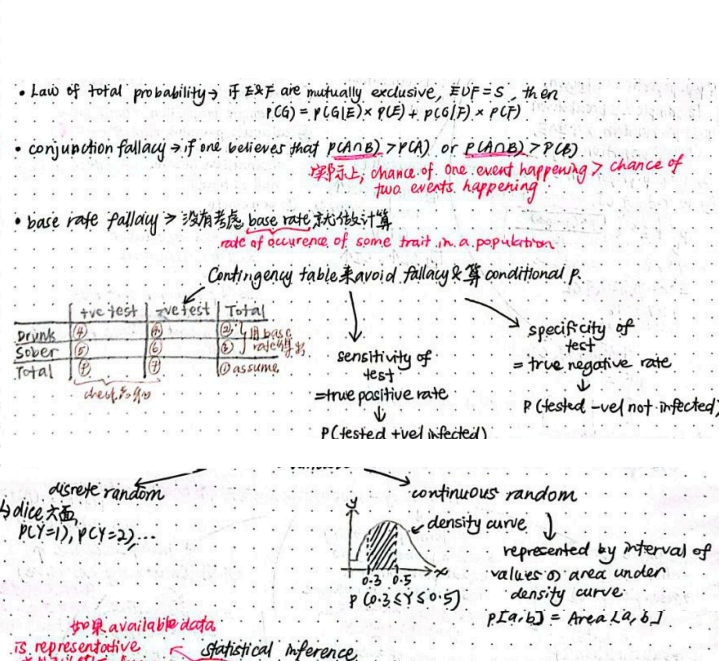 • Law of total probability → if E&F are mutually exclusive, E∪F=S, then
P(G) = P(G|E) × P(E) + P(G|F) × P(F)
• conjunction fallacy → if one believes that P(A∩B) > P(A) or P(A∩B) > P(B)
实际上, chance of one event happening > chance of
two events happening
• base rate fallacy → 没有考虑 base rate 就做计算
rate of occurence of some trait in a population
Contingency table 来 avoid fallacy & 算 conditional p.
+ve test -ve test Total
Drunk ④ ② 用 base
Sober ⑤ ⑥ ③ rate 算
Total ⑦ ① assume
sensitivity of
test
=true positive rate
↓
P(tested +ve| infected)
specificity of
test
= true negative rate
↓
P(tested -ve| not infected)
discrete random
↳ dice 六面,
P(Y=1), P(Y=2)...
continuous random
y
density curve
x
0.3 0.5
P(0.3≤Y≤0.5)
represented by interval of
values area under
density curve
P[a,b] = Area [a,b]
如果 available data
is representative
statistical inference